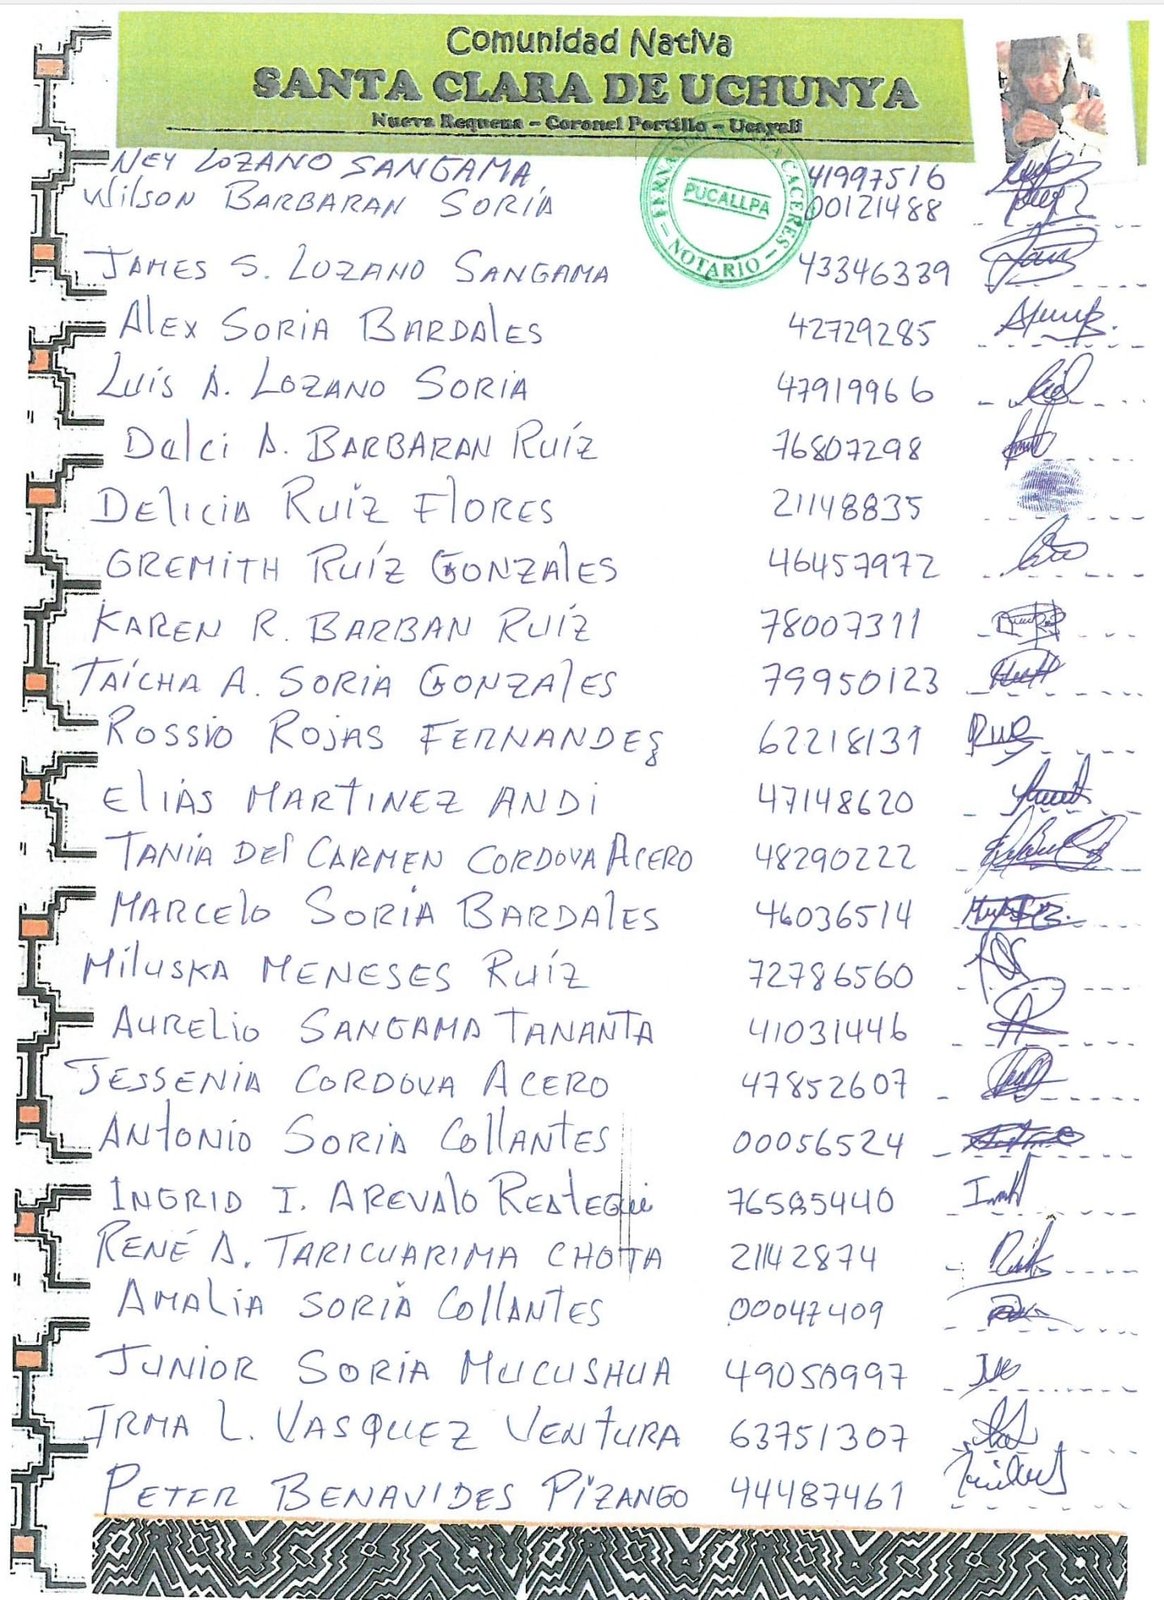 Comunidad Nativa
SANTA CLARA DE UCHUNYA
Nueva Requena – Coronel Portillo – Ucayali
NEY LOZANO SANGAMA 41997516
Wilson BARBARAN SORIA 00121488
PUCALLPA
NOTARIO
JAMES S. LOZANO SANGAMA 43346339
Alex SORIA BARDALES 42729285
LUIS A. LOZANO SORIA 47919966
Dalci A. BARBARAN RUÍZ 76807298
DELICIA RUIZ FLORES 21148835
GREMITH RUÍZ GONZALES 46457972
KAREN R. BARBAN RUÍZ 78007311
TAÍCHA A. SORIA GONZALES 79950123
ROSSIO ROJAS FERNANDES 62218131
ELIAS MARTINEZ ANDI 47148620
TANIA DEL CARMEN CORDOVA ACERO 48290222
MARCELO SORIA BARDALES 46036514
MILUSKA MENESES RUÍZ 72786560
AURELIO SANGAMA TANANTA 41031446
JESSENIA CORDOVA ACERO 47852607
ANTONIO SORIA COLLANTES 00056524
INGRID I. AREVALO REATEGUI 76585440
RENÉ A. TARICUARIMA CHOTA 21142874
AMALIA SORIA COLLANTES 00047409
JUNIOR SORIA MUCUSHUA 49050997
IRMA L. VASQUEZ VENTURA 63751307
PETER BENAVIDES PIZANGO 44487461